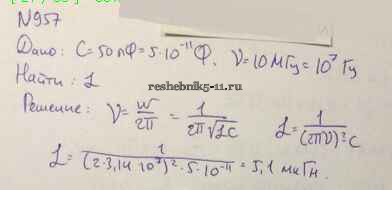 N957
Дано: C = 50 пФ = 5·10⁻¹¹ Ф. ν = 10 МГц = 10⁷ Гц
Найти: L
reshebnik5-11.ru
Решение: ν = w/2π = 1/2π√LC L = 1/(2πν)²C
L = 1/(2·3,14·10⁷)²·5·10⁻¹¹ = 5,1 мкГн.